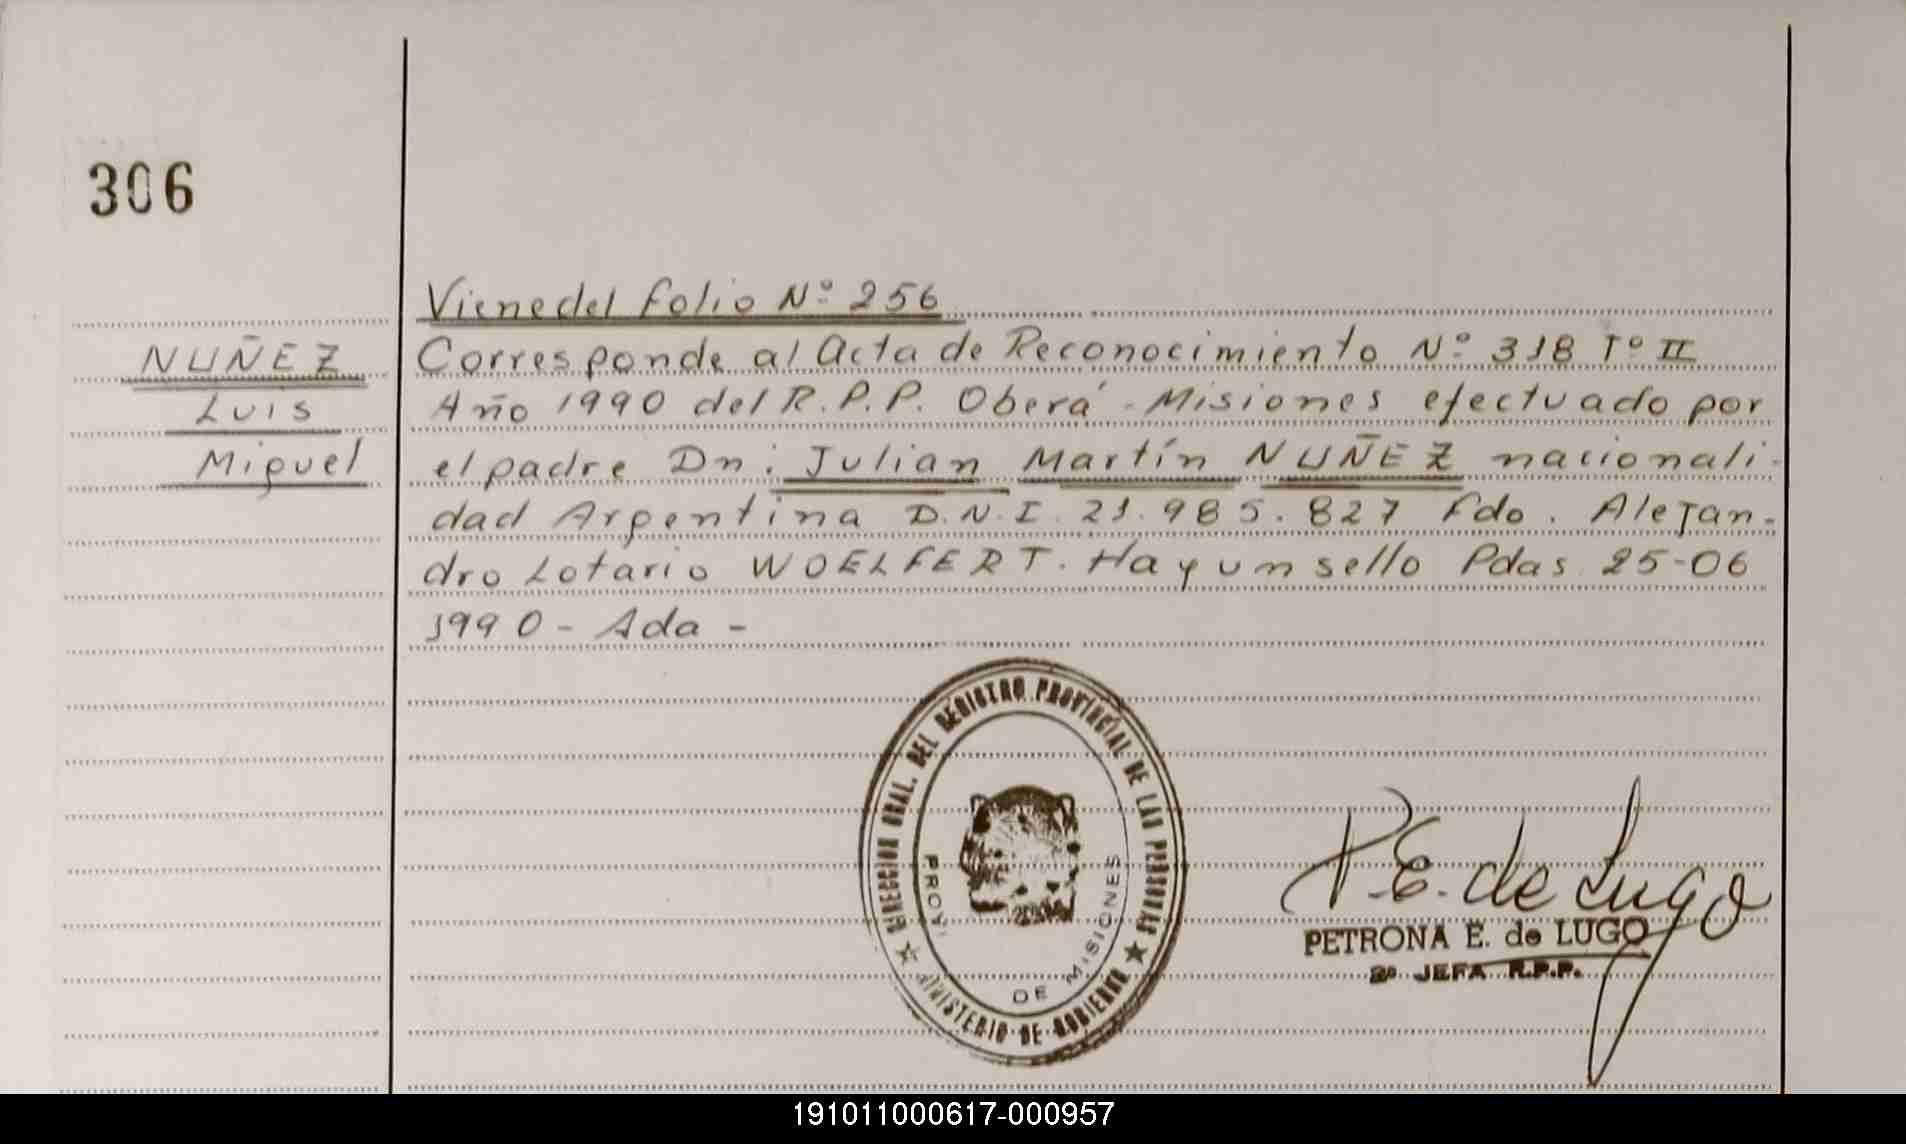 306
Viene del folio Nº 256
NUÑEZ
Luis
Miguel
Corresponde al Acta de Reconocimiento Nº 318 Tº II
Año 1990 del R.P.P. Oberá - Misiones efectuado por
el padre Dn: Julian Martín NUÑEZ nacionali-
dad Argentina D.N.I. 21.985.827 fdo. Alejan-
dro Lotario WOELFERT. Hay un sello Pdas 25-06
1990 - Ada -
DIRECCION GRAL. DEL REGISTRO PROVINCIAL DE LAS PERSONAS
MINISTERIO DE GOBIERNO
PROV. DE MISIONES
P.E. de Lugo
PETRONA E. de LUGO
2º JEFA R.P.P.
191011000617-000957